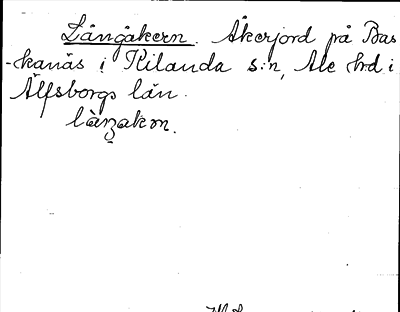 Långåkern. Åkerjord på Bas
-kanäs i Kilanda s:n, Ale hrd i
Älfsborgs län.